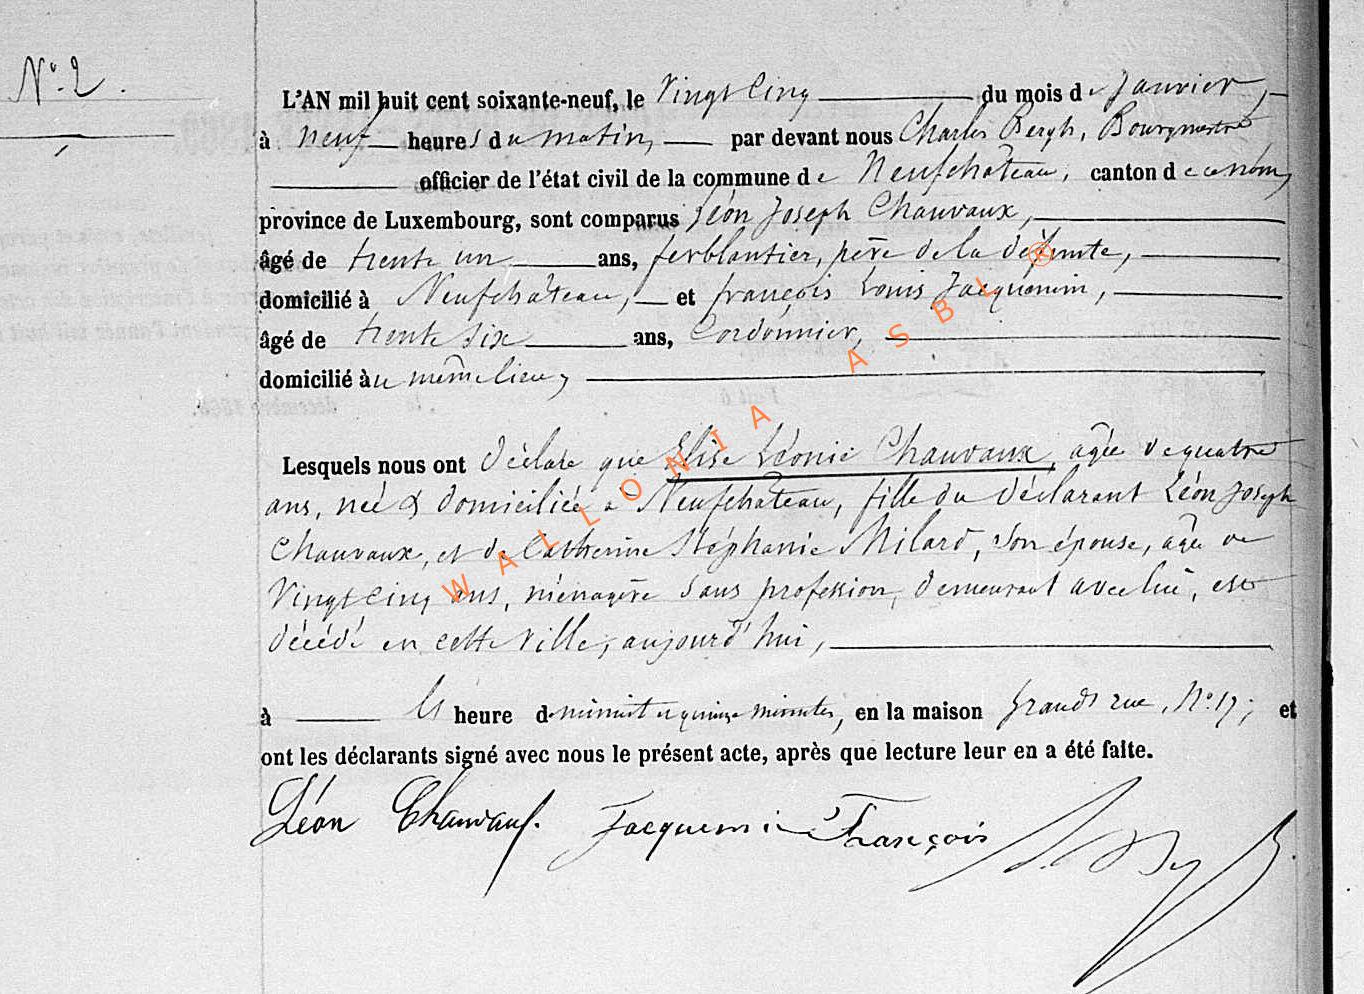 N° 2.
L'AN mil huit cent soixante-neuf, le Vingt Cinq du mois de Janvier,
à neuf heures du matin, par devant nous Charles Bergh, Bourgmestre
officier de l'état civil de la commune de Neufchâteau, canton de ce nom,
province de Luxembourg, sont comparus Léon Joseph Chauvaux,
âgé de trente un ans, ferblantier, père de la défunte,
domicilié à Neufchâteau, et françois Louis Jacquemin,
âgé de trente six ans, Cordonnier,
domicilié au même lieu,
Lesquels nous ont déclaré que Elise Léonie Chauvaux, agée de quatre
ans, née & domiciliée à Neufchâteau, fille du déclarant Léon Joseph
Chauvaux, et de Catherine Stéphanie Milard, son épouse, agée de
Vingt Cinq ans, ménagère sans profession, demeurant avec lui, est
décédé en cette Ville, aujourd'hui,
à les heure de minuit et quinze minutes, en la maison Grande rue, N° 17; et
ont les déclarants signé avec nous le présent acte, après que lecture leur en a été faite.
Léon Chauvaux. Jacquemin François
WALLONIA ASBL ®